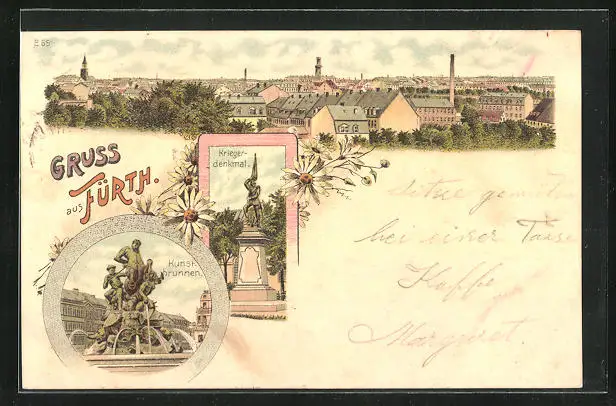 E 65
GRUSS
aus FÜRTH.
Krieger-
denkmal.
Kunst-
brunnen.
bei einer Tasse
Kaffe
Margaret.